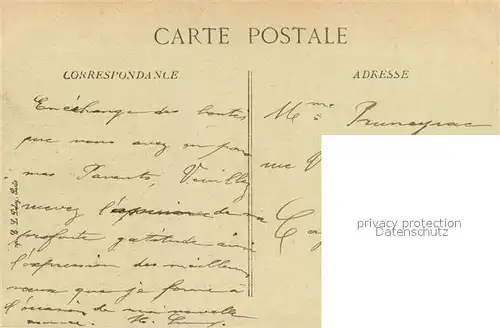 CARTE POSTALE
CORRESPONDANCE
ADRESSE
En échange des bontés
que vous avez eu pour
mes Parents, Veuillez
recevez l'expression de ma
profonte gratitude ainsi
l'expression des meilleurs
vœux que je forme à
l'occasion de ma nouvelle
Mme Pruneyrac
rue
privacy protection
Datenschutz